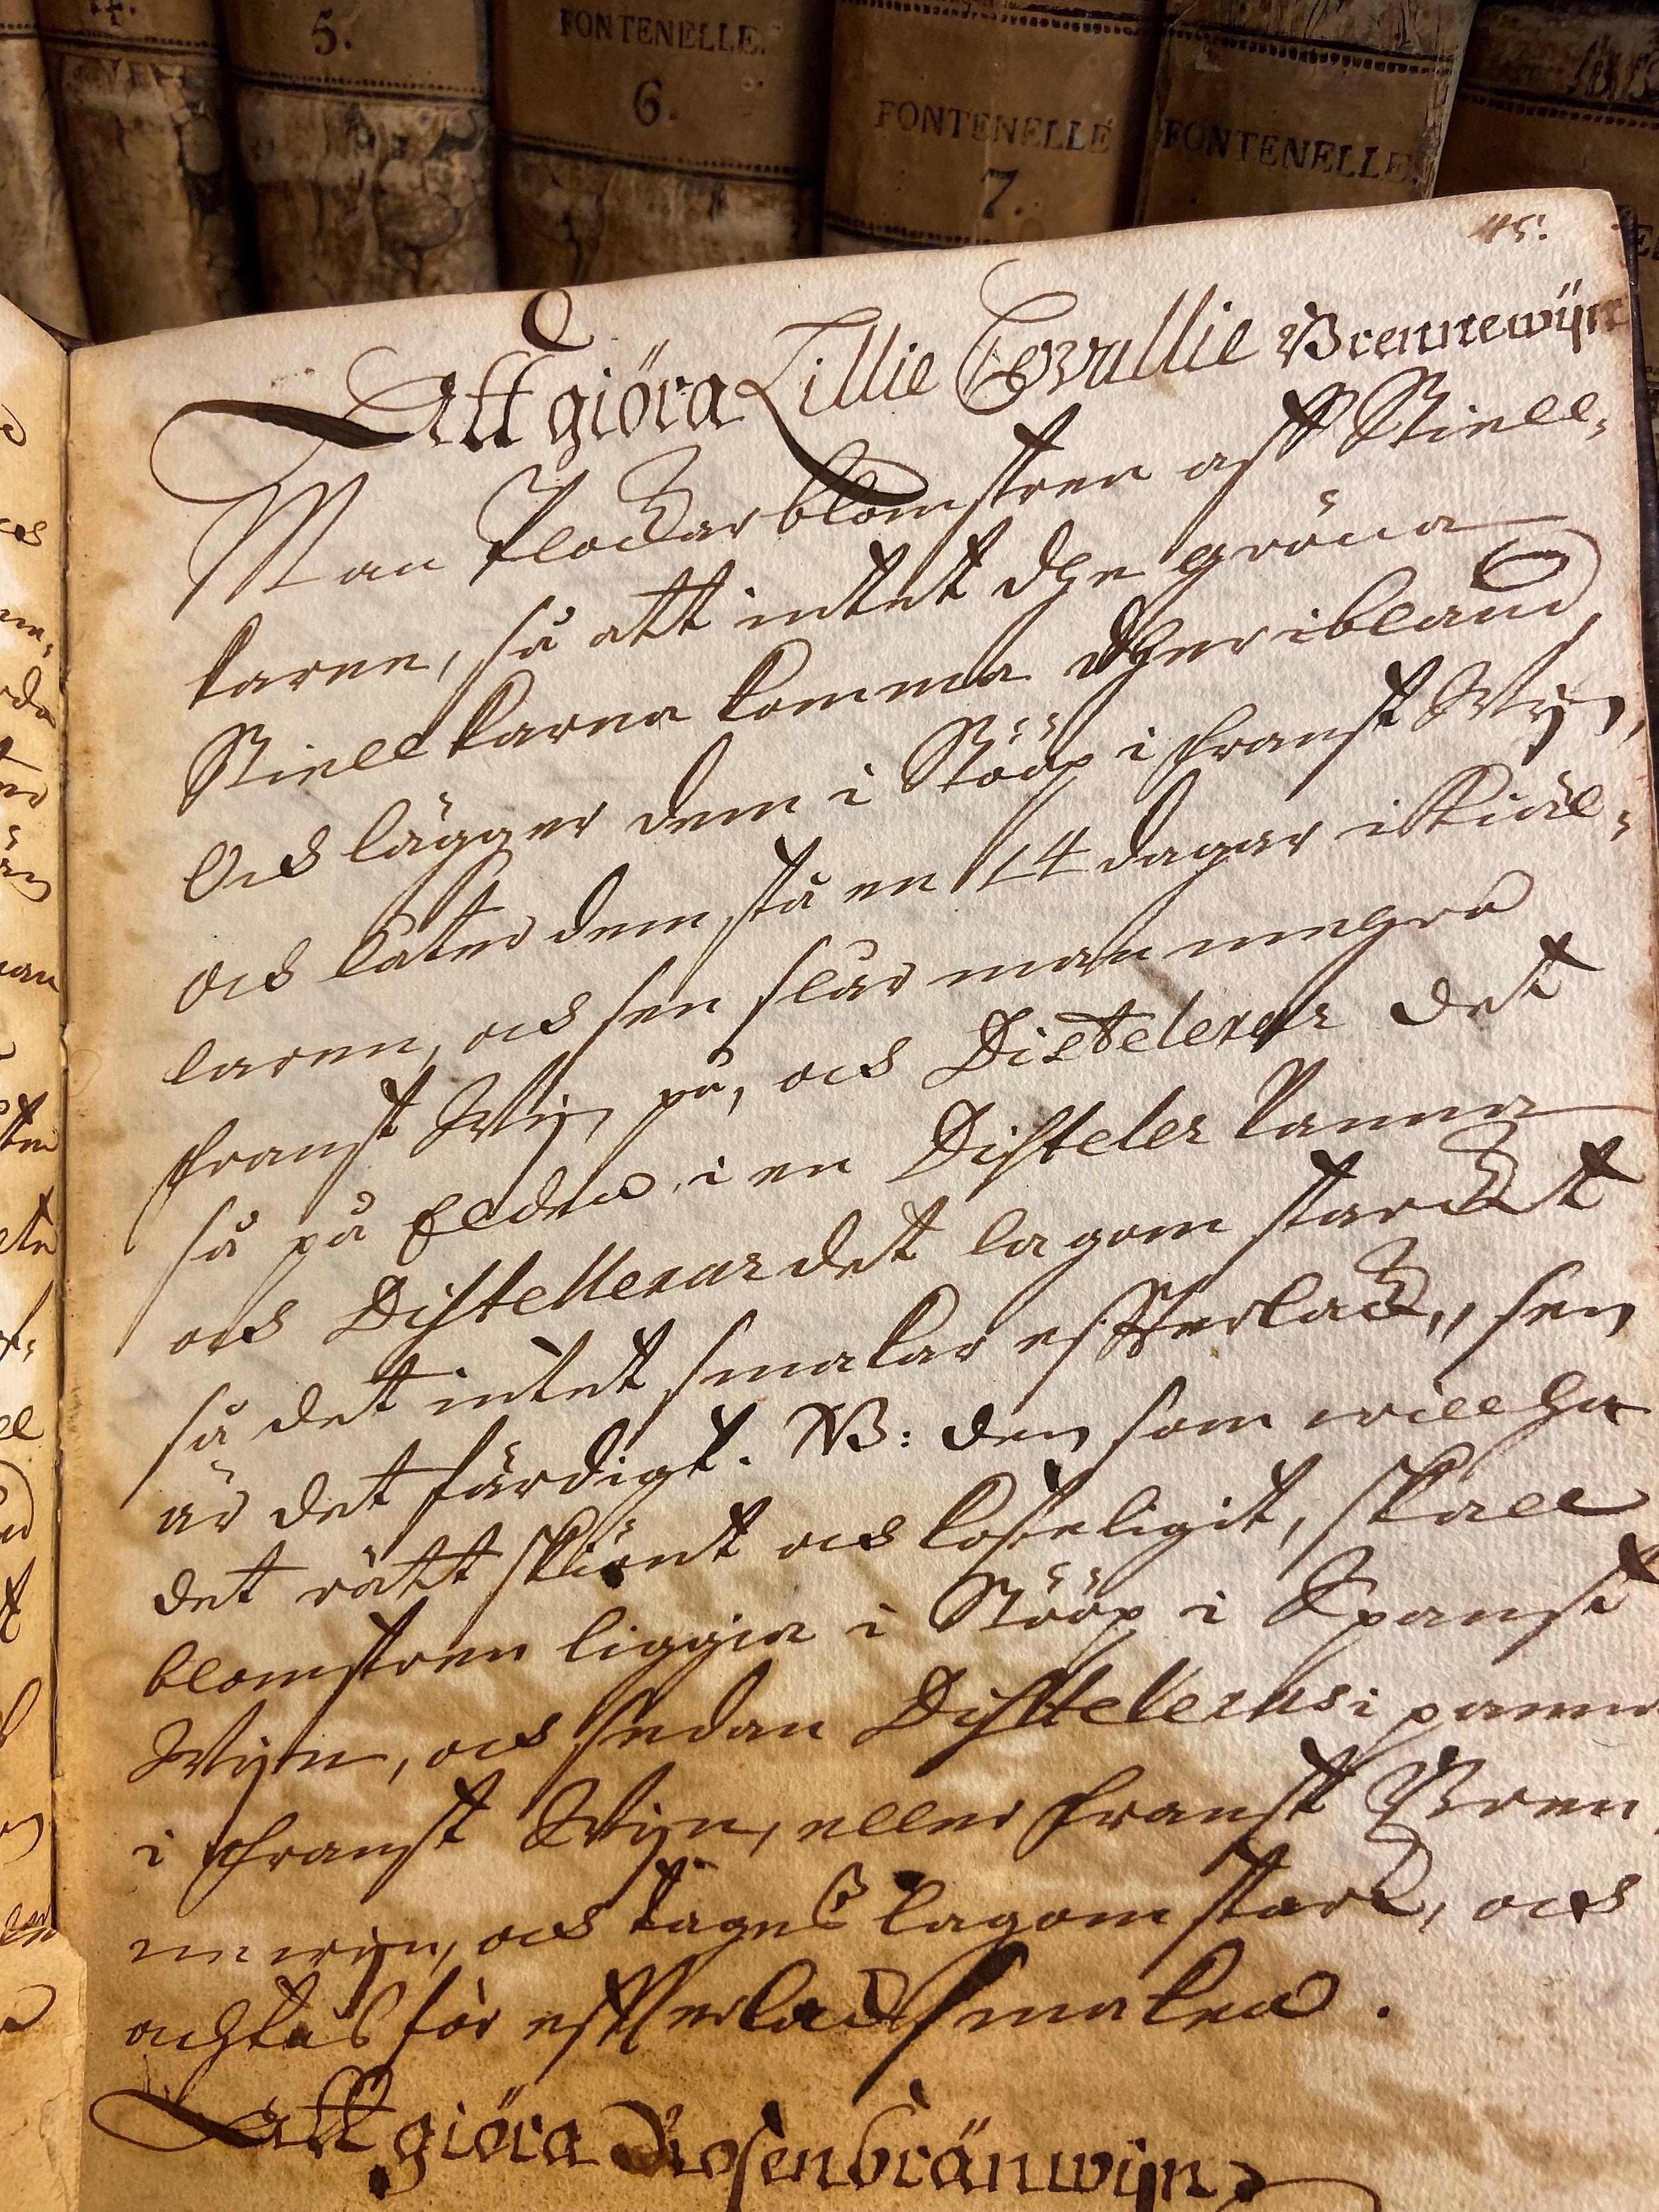 5.
FONTENELLE.
6.
FONTENELLE
7.
FONTENELLE.
115.
Att giöra Lillie Convallie Brennewijn
Man plockar blomstren aff Stiell-
karne, så att intet dhe gröna
Stiellkarna komma dher ibland,
Och lägger dem i Stööp i franst Wijn,
och låter dem stå en 14 dagar i Kiäl-
laren, och sen slår man mehra
franst Wijn på, och Distelerar det
så på Elden, i en Disteler kanna
och Distellerar det lagom starckt
så det intet smakar effterlack, sen
är det färdigt. NB: den som will ha
det rätt skiönt och kosteligit, skall
blomstren liggia i Stööp i Spanst
Wijn, och sedan Distteleras i panna
i franst Wijn, eller franst Bren
newijn, och tages lagom starck, och
achtas för effterlack smaken.
Att giöra Rosenbränwijn